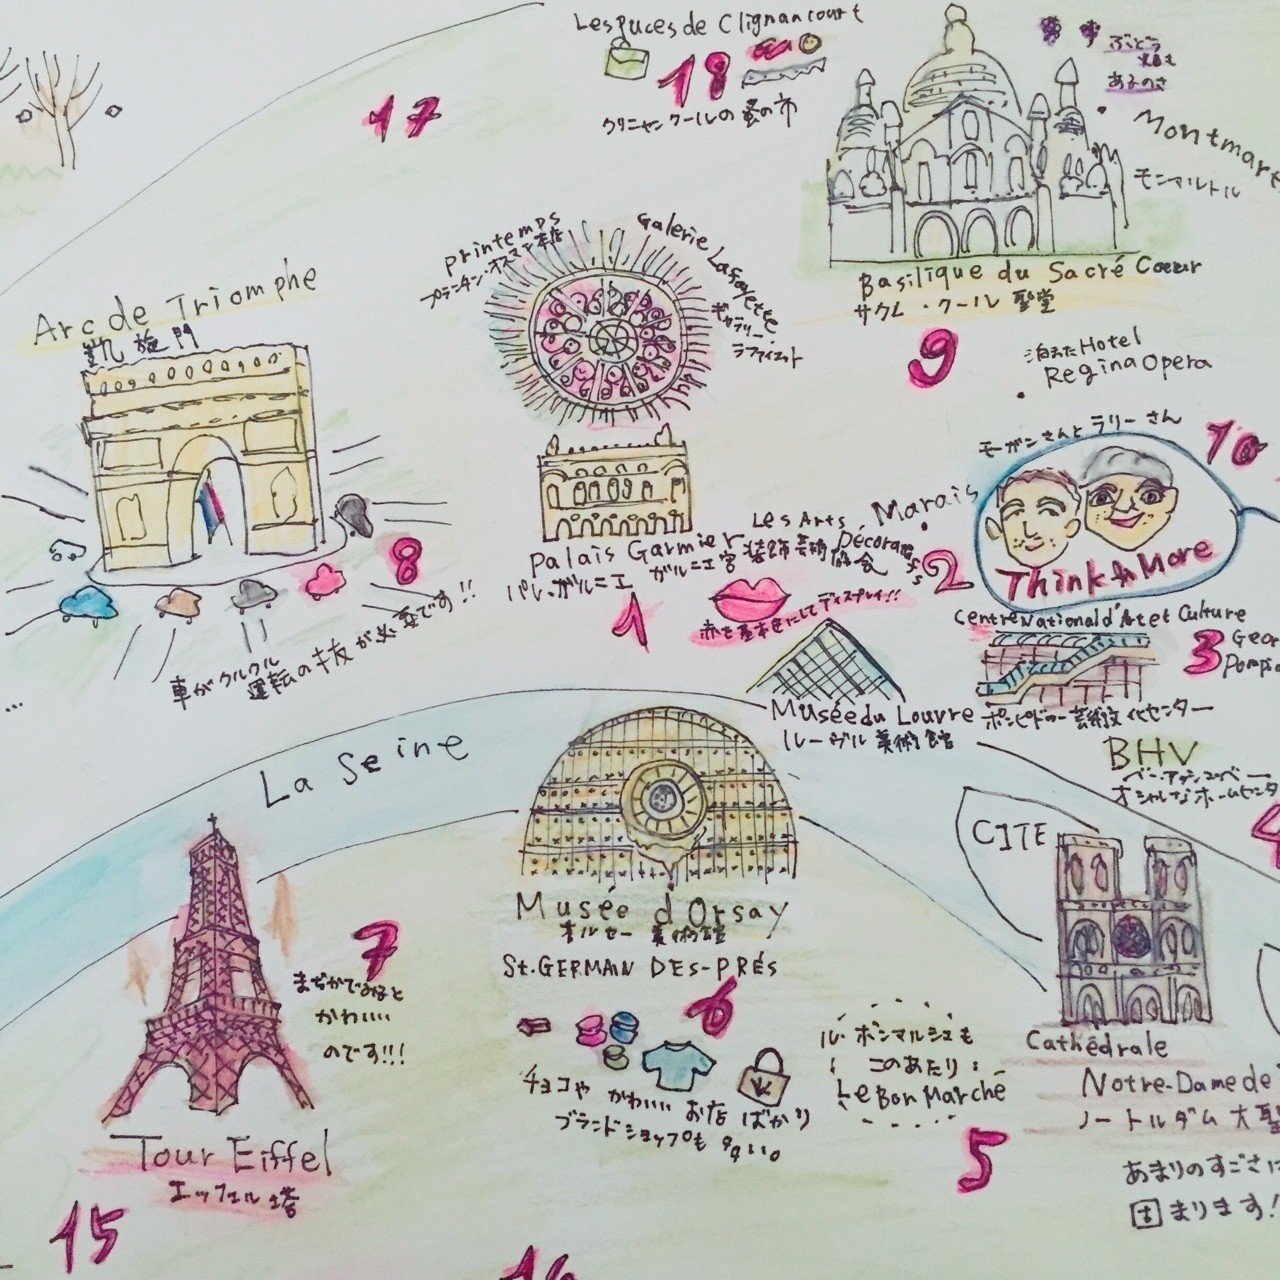 Les Puces de Clignancourt
18
クリニャンクールの蚤の市
17
ぶどう
畑も
あるのさ
Montmart
モンマルトル
Basilique du Sacré Coeur
サクレ・クール聖堂
printemps
プランタン・オスマン本店
Galerie Lafayette
ギャラリー・
ラファイエット
Arc de Triomphe
凱旋門
8
車がクルクル
運転の技が必要です!!
9
泊まったHotel
Regina Opera
モーガンさんとラリーさん
10
Think & More
Palais Garnier
パレ・ガルニエ ガルニエ宮
1
Les Arts Décoratifs
装飾芸術協会
赤を基本色にしてディスプレイ!!
Marais
2
Centre National d'Art et Culture
Geor
Pompid
3
ポンピドゥー芸術文化センター
Musée du Louvre
ルーヴル美術館
BHV
ベーアッシュベー
オシャレなホームセンタ
4
La Seine
CITE
Cathédrale
Notre-Dame de
ノートルダム大聖
あまりのすごさに
固まります!
Musée d'Orsay
オルセー美術館
St. GERMAIN DES-PRÉS
6
チョコや かわいい お店 ばかり
ブランドショップも
ル・ボンマルシェも
このあたり
Le Bon Marché
5
7
まぢかでみると
かわいい
のです!!!
Tour Eiffel
エッフェル塔
15
14